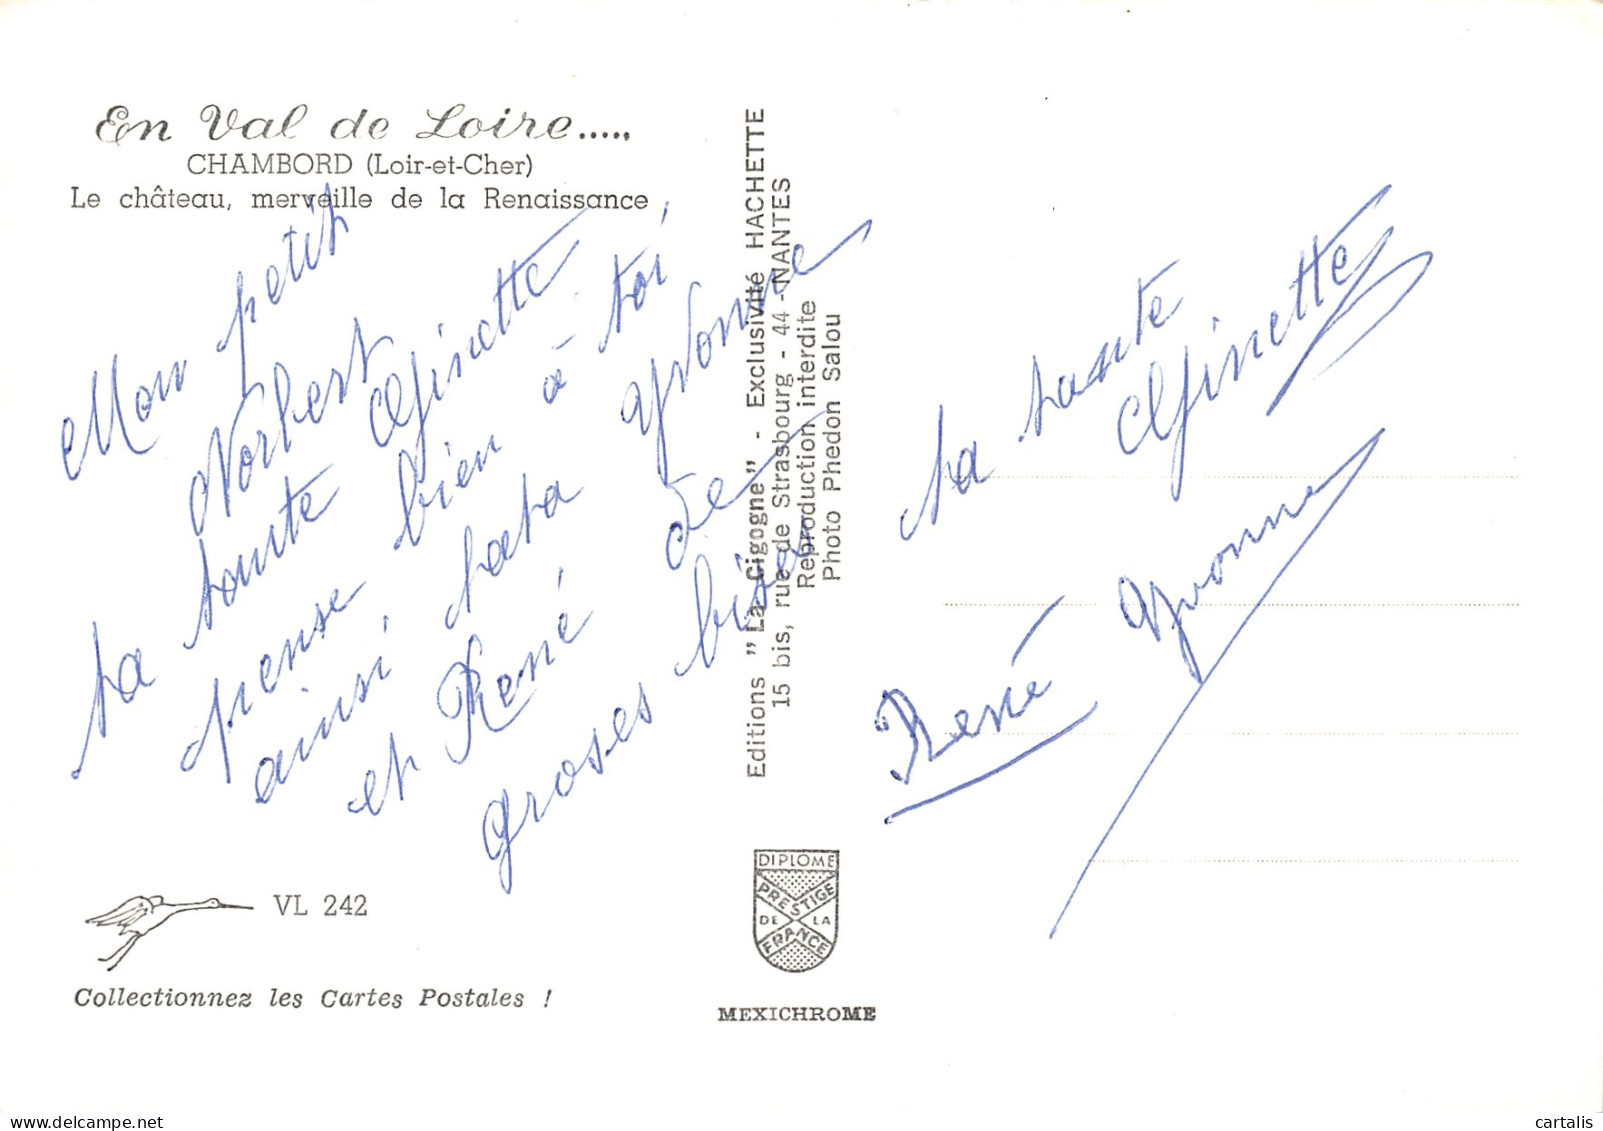 En Val de Loire.....
CHAMBORD (Loir-et-Cher)
Le château, merveille de la Renaissance
Mon petit
Norbert
ta tante Ginette
pense bien à toi
ainsi tata Yvonne
et René De
groses bises
VL 242
Collectionnez les Cartes Postales !
Editions "La Cigogne" - Exclusivité HACHETTE
15 bis, rue de Strasbourg - 44 - NANTES
Reproduction interdite
Photo Phedon Salou
DIPLOME
PRESTIGE
DE LA
FRANCE
MEXICHROME
ta tante
Ginette
René Yvonne
cartalis